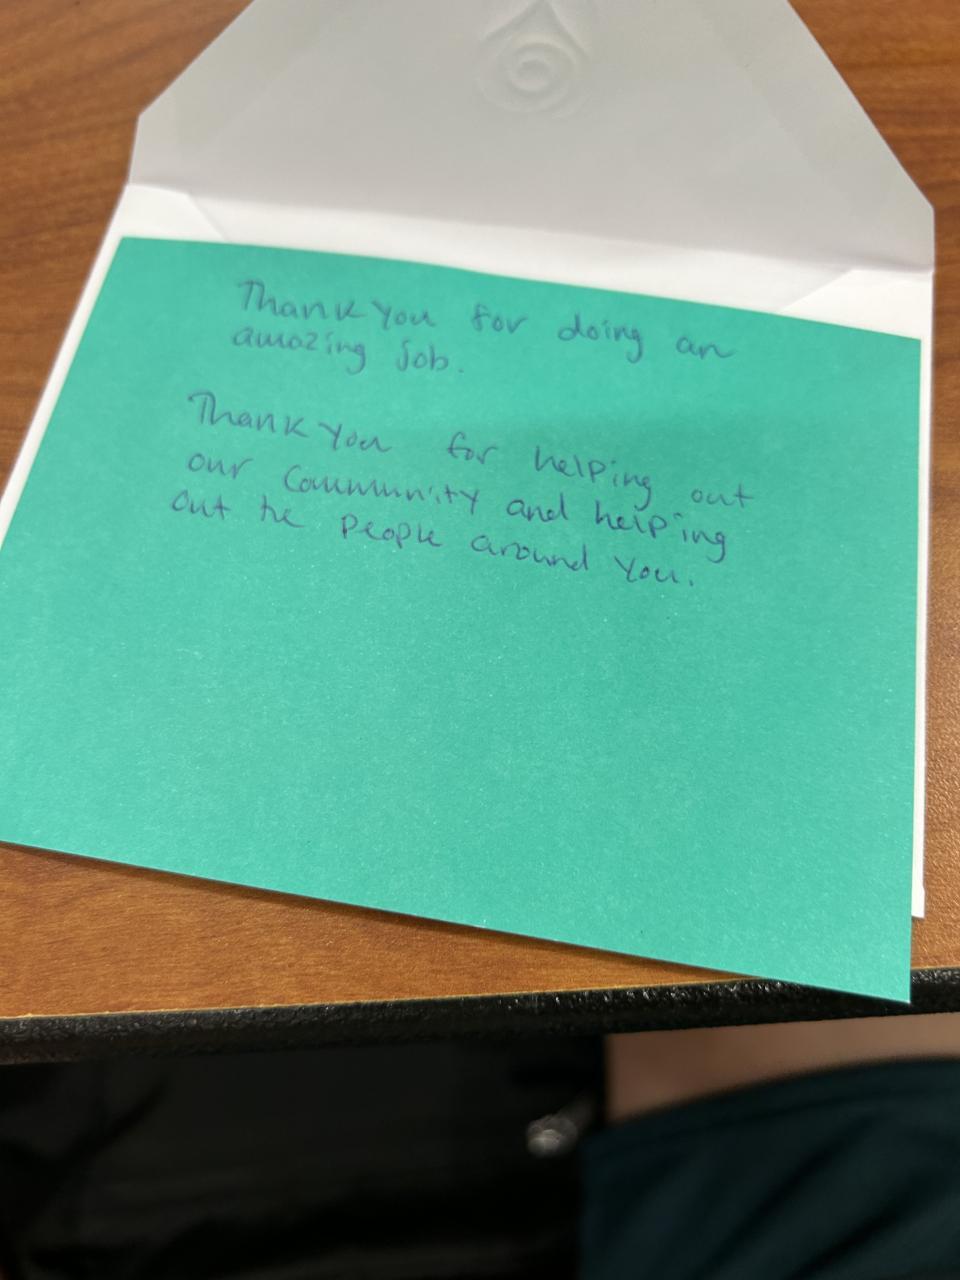 Thank you for doing an
amazing job.
Thank you for helping out
our community and helping
out he people around you.